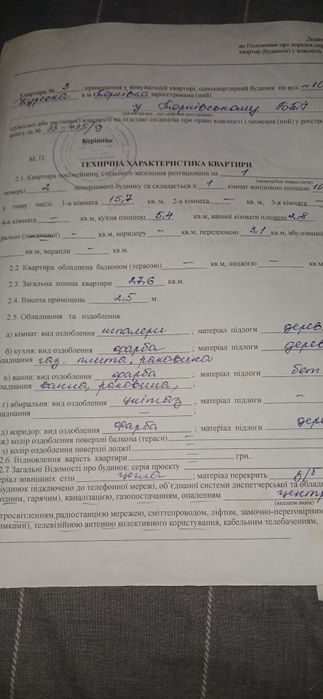 Додат
до Положення про порядок пер
квартир (будинків) у власність
Квартира № 2, приміщення у комунальній квартирі, одноквартирний будинок по вул
Курська в м. Торнівка зареєстрована (ний)
у Тернівському БТІ
власності на підставі свідоцтва про право власності і записана (ний) у реєстро
книгу за №
Керівник
М. П.
ТЕХНІЧНА ХАРАКТЕРИСТИКА КВАРТИРИ
2.1. Квартира посімейного, спільного заселення розташована на 1
(непотрібне викреслити)
поверсі 2 поверхового будинку та складається з: 1 кімнат житловою площею 15
у тому числі 1-а кімната 15,7 кв. м, 2-а кімната — кв. м, 3-я кімната —
4-а кімната — кв.м, кухня площею 5,4 кв.м, ванної кімнати площею 2,8
— кв.м, коридору — кв.м, передпокою 2,1 кв.м, вбудованої
кв.м, веранди — кв.м.
2.2. Квартира обладнена балконом (терасою) — кв.м, лоджією — кв.м
2.3. Загальна площа квартири 27,6 кв.м.
2.4. Висота приміщень 2,5 м.
2.5. Обладнання та оздоблення:
а) кімнат: вид оздоблення шпалери ; матеріал підлоги дерев
б) кухня: вид оздоблення фарба ; матеріал підлоги дерев
бладнання газ. плита, раковина
в) ванна: вид оздоблення фарба ; матеріал підлоги бет
ладнання ванна, раковина,
г) вбиральня: вид оздоблення унітаз ; матеріал підлоги —
ладнання —
д) коридор: вид оздоблення фарба ; матеріал підлоги дере
ж) колір оздоблення поверхні балкона (тераси) —
з) колір оздоблення поверхні лоджії —
2.6. Відновна вартість квартири — грн..
2.7 Загальні Відомості про будинок: серія проекту
еріал зовнішніх стін цегла ; матеріал перекрить з/б
Будинок підключено до телефонної мережі, об'єднаної системи диспетчерської та обладн
одним, гарячим), каналізацією, газопостачанням, опаленням центр
(вказати яким)
тросвітленням, радіостанцією мережею, сміттєпроводом, ліфтом, замочно-переговорним
амками), телевізійною антеною колективного користування, кабельним телебаченням,